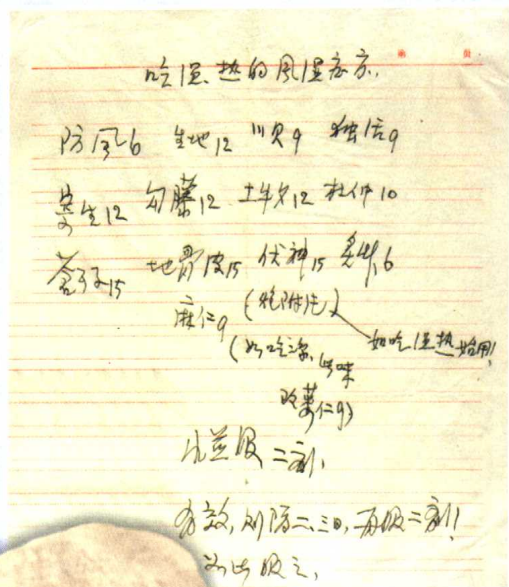 吃温热的风湿症方.
防风6 生地12 川贝9 独活9
寄生12 勾藤12 土牛夕12 杜仲10
苍耳子15 地骨皮15 伏神15 炙草6
麻仁9 (炮附片) 如吃温热始用!
(如吃凉, 此味
改蒌仁9)
水并服二剂,
有效, 则隔二、三日, 再服二剂!
如此服之,